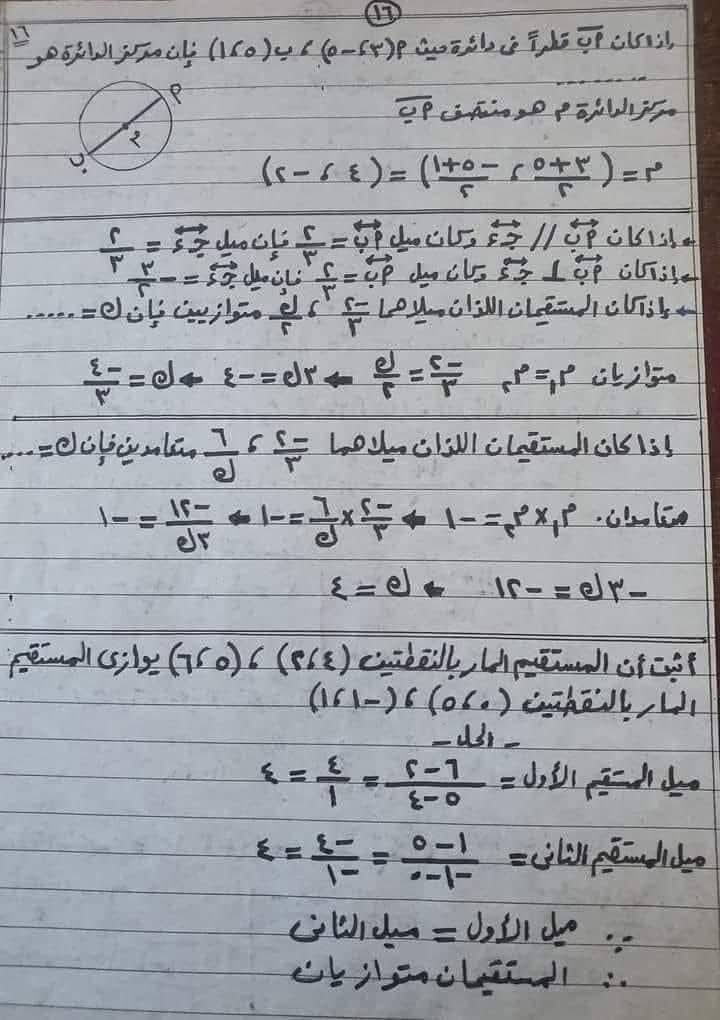 ١٦
١٦
إذا كان أب قطراً فى دائرة حيث أ(٣، -٥) ، ب(٥، ١) فإن مركز الدائرة هو
........
مركز الدائرة م هو منتصف أب
أ م ب
م = (٣+٥/٢ ، -٥+١/٢) = (٤، -٢)
← إذا كان أب // جـء وكان ميل أب = ٢/٣ فإن ميل جـء = ٢/٣
← إذا كان أب ⊥ جـء وكان ميل أب = ٢/٣ فإن ميل جـء = -٣/٢
← إذا كان المستقيمان اللذان ميلاهما -٢/٣ ، ك/٢ متوازيين فإن ك = .....
متوازيان م١ = م٢ -٢/٣ = ك/٢ ← ٣ك = -٤ ← ك = -٤/٣
إذا كان المستقيمان اللذان ميلاهما -٢/٣ ، ٦/ك متعامدين فإن ك = ....
متعامدان. م١ × م٢ = -١ ← -٢/٣ × ٦/ك = -١ ← -١٢/٣ك = -١
-٣ك = -١٢ ← ك = ٤
أثبت أن المستقيم المار بالنقطتين (٤، ٢) ، (٥، ٦) يوازى المستقيم
المار بالنقطتين (٠، ٥) ، (-١، ١)
- الحل -
ميل المستقيم الأول = ٦-٢/٥-٤ = ٤/١ = ٤
ميل المستقيم الثانى = ١-٥/-١-٠ = -٤/-١ = ٤
∵ ميل الأول = ميل الثانى
∴ المستقيمان متوازيان